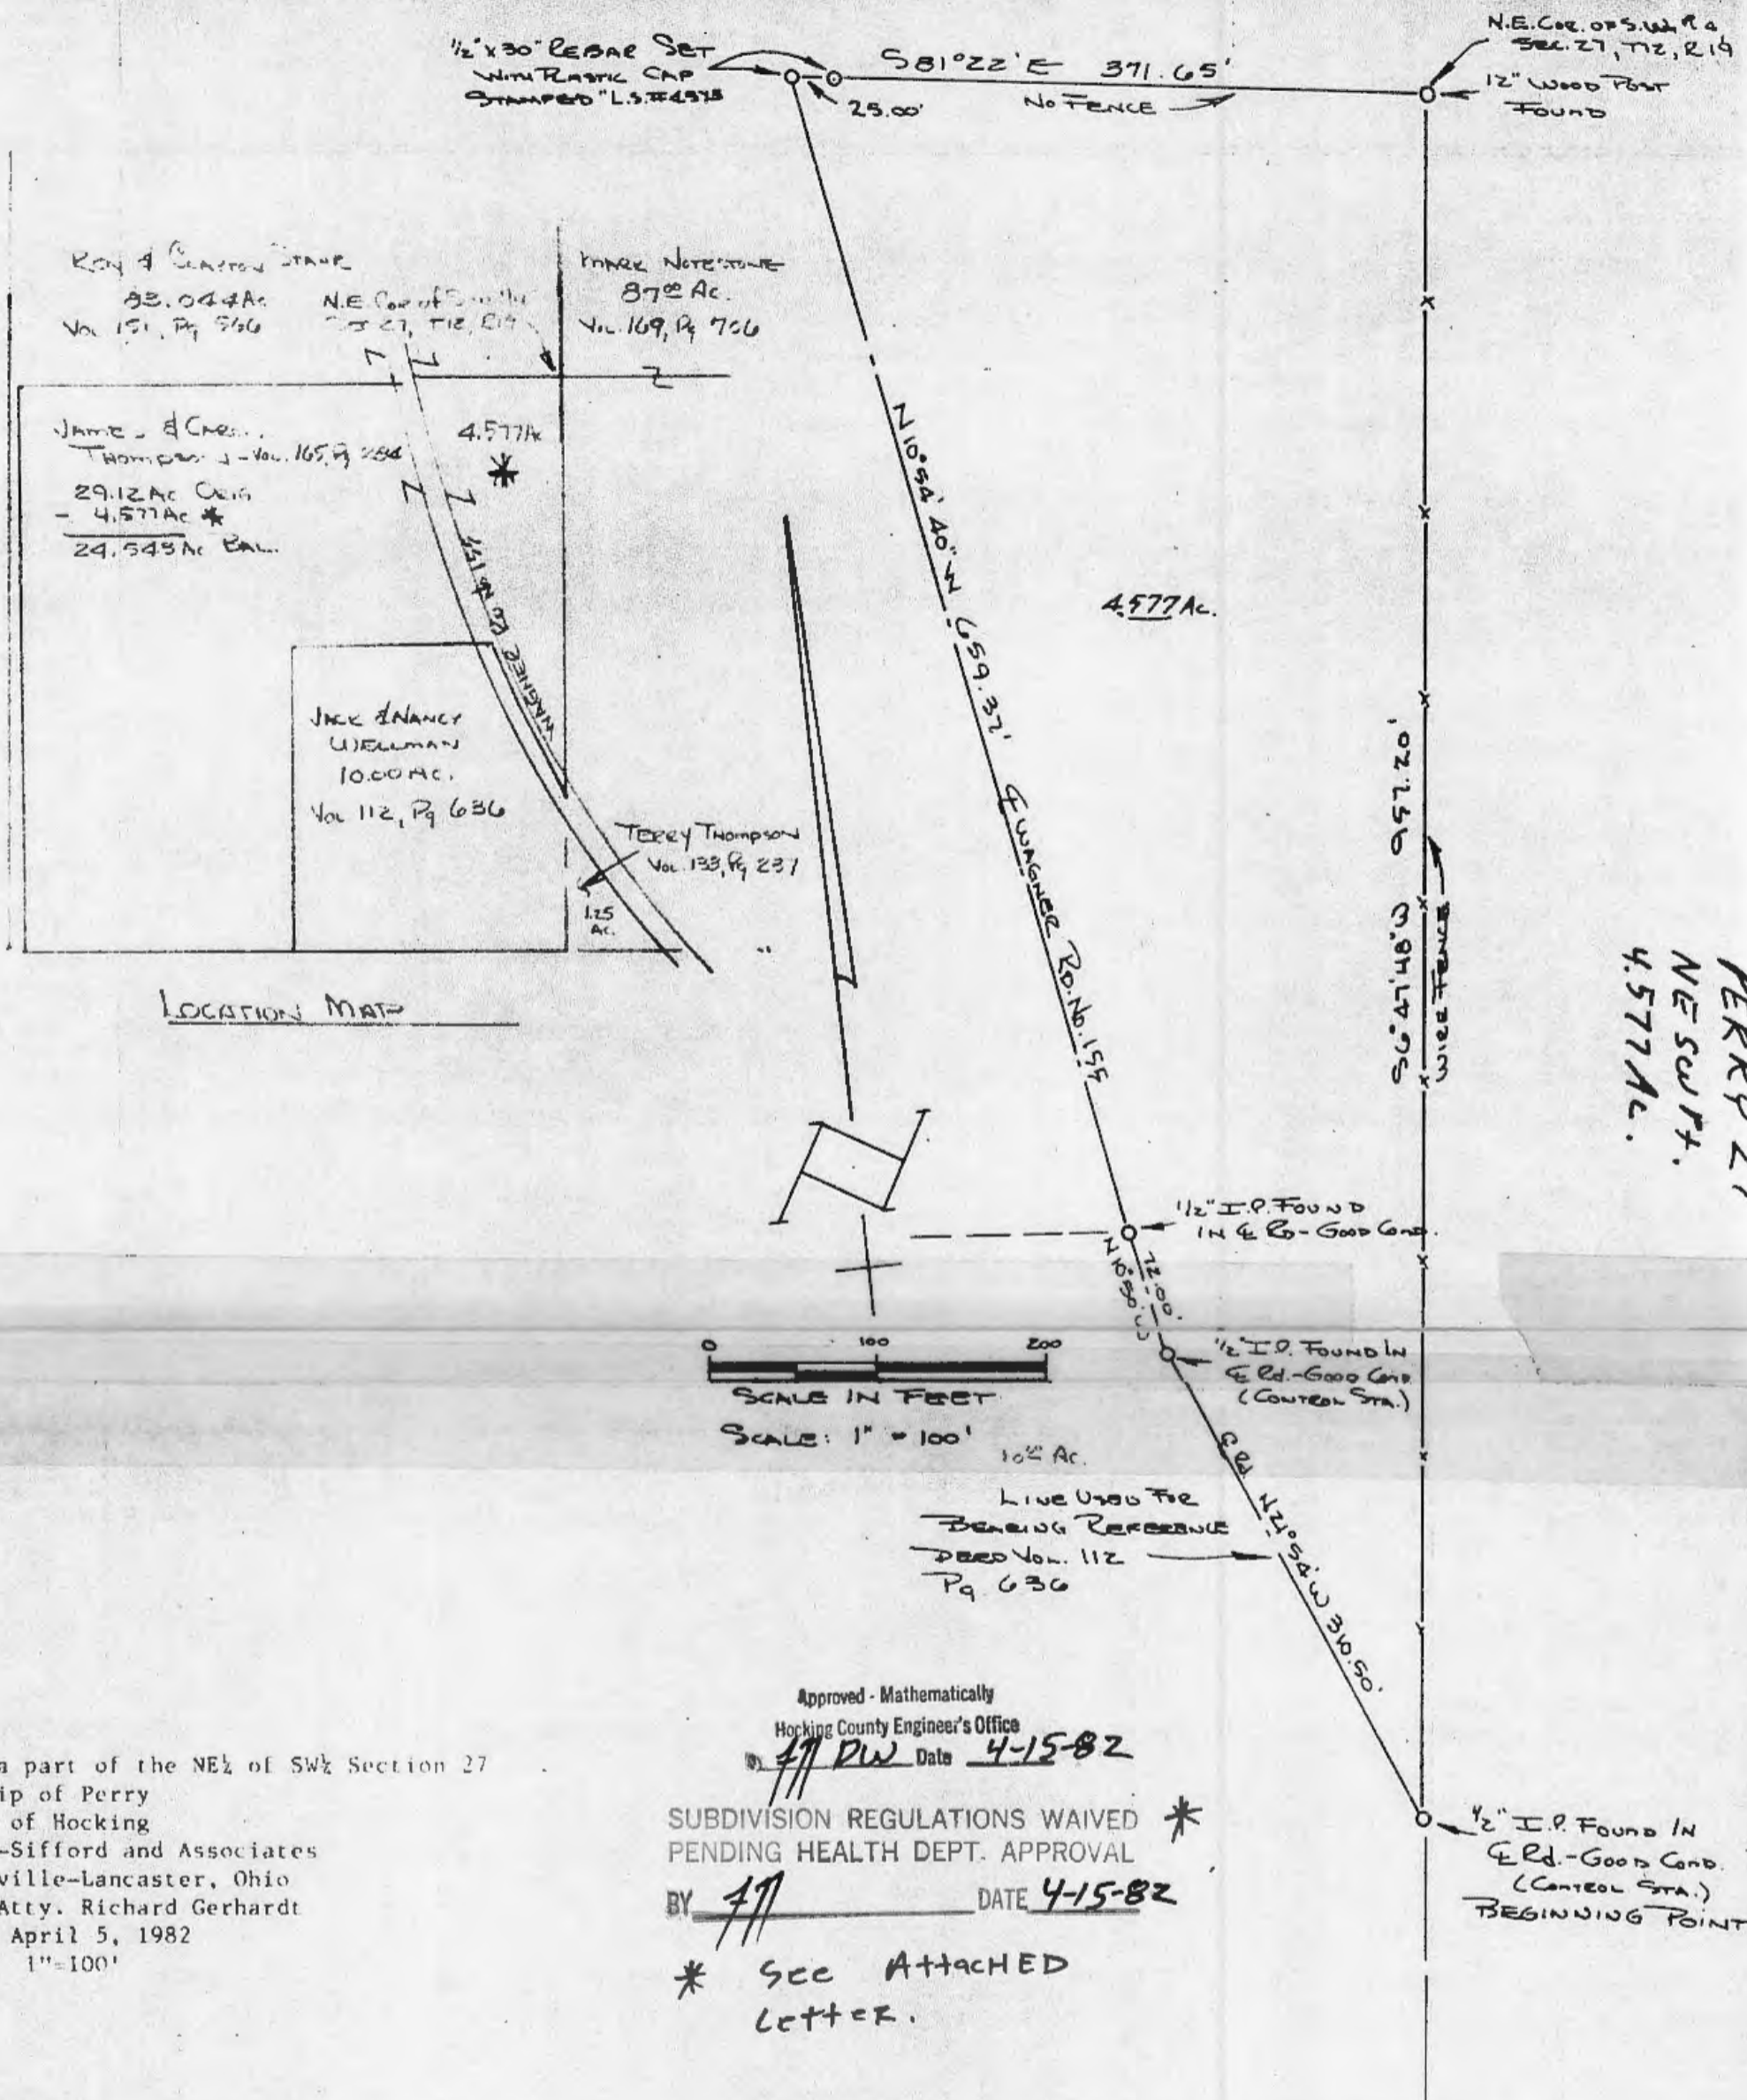 1/2" x 30" REBAR SET
WITH PLASTIC CAP
STAMPED "L.S.#4373
S81°22'E 371.65'
25.00'
NO FENCE
N.E. COR. OF S.W.
SEC. 27, T12, R19
12" WOOD POST
FOUND
ROY & CLAYTON
93.044Ac
VOL 151, Pg 566
N.E. COR of
27, T12, R19
MARK NOTESTONE
87 00 Ac.
VOL. 169, Pg 706
JAMES & CAROL
THOMPSON - VOL. 165, Pg 284
29.12 Ac ORIG
- 4.577 Ac *
24.543 Ac BAL.
4.577Ac
*
WAGNER RD. #155
JACK & NANCY
WELLMAN
10.00 AC.
VOL 112, Pg 636
TERRY THOMPSON
VOL. 133, Pg 237
1.25
AC.
LOCATION MAP
N10°54'40"W 659.37'
℄ WAGNER RD. NO. 155
4.577 Ac.
S6°47'48"W 957.20'
WIRE FENCE
PERRY 27
NE SW Pt.
4.577 Ac.
N
1/2" I.P. FOUND
IN ℄ RD - GOOD COND.
72.00'
N10°50'W
1/2" I.P. FOUND IN
℄ Rd. - GOOD COND.
(CONTROL STA.)
0 100 200
SCALE IN FEET
SCALE: 1" = 100'
10 00 Ac.
LINE USED FOR
BEARING REFERENCE
DEED VOL. 112
Pg. 636
℄ Rd. N21°54'W 310.50'
Approved - Mathematically
Hocking County Engineer's Office
DW Date 4-15-82
SUBDIVISION REGULATIONS WAIVED *
PENDING HEALTH DEPT. APPROVAL
BY DATE 4-15-82
* See AttACHED
Letter.
a part of the NE¼ of SW¼ Section 27
ip of Perry
of Hocking
-Sifford and Associates
ville-Lancaster, Ohio
Atty. Richard Gerhardt
April 5, 1982
1"=100'
1/2" I.P. FOUND IN
℄ Rd. - GOOD COND.
(CONTROL STA.)
BEGINNING POINT